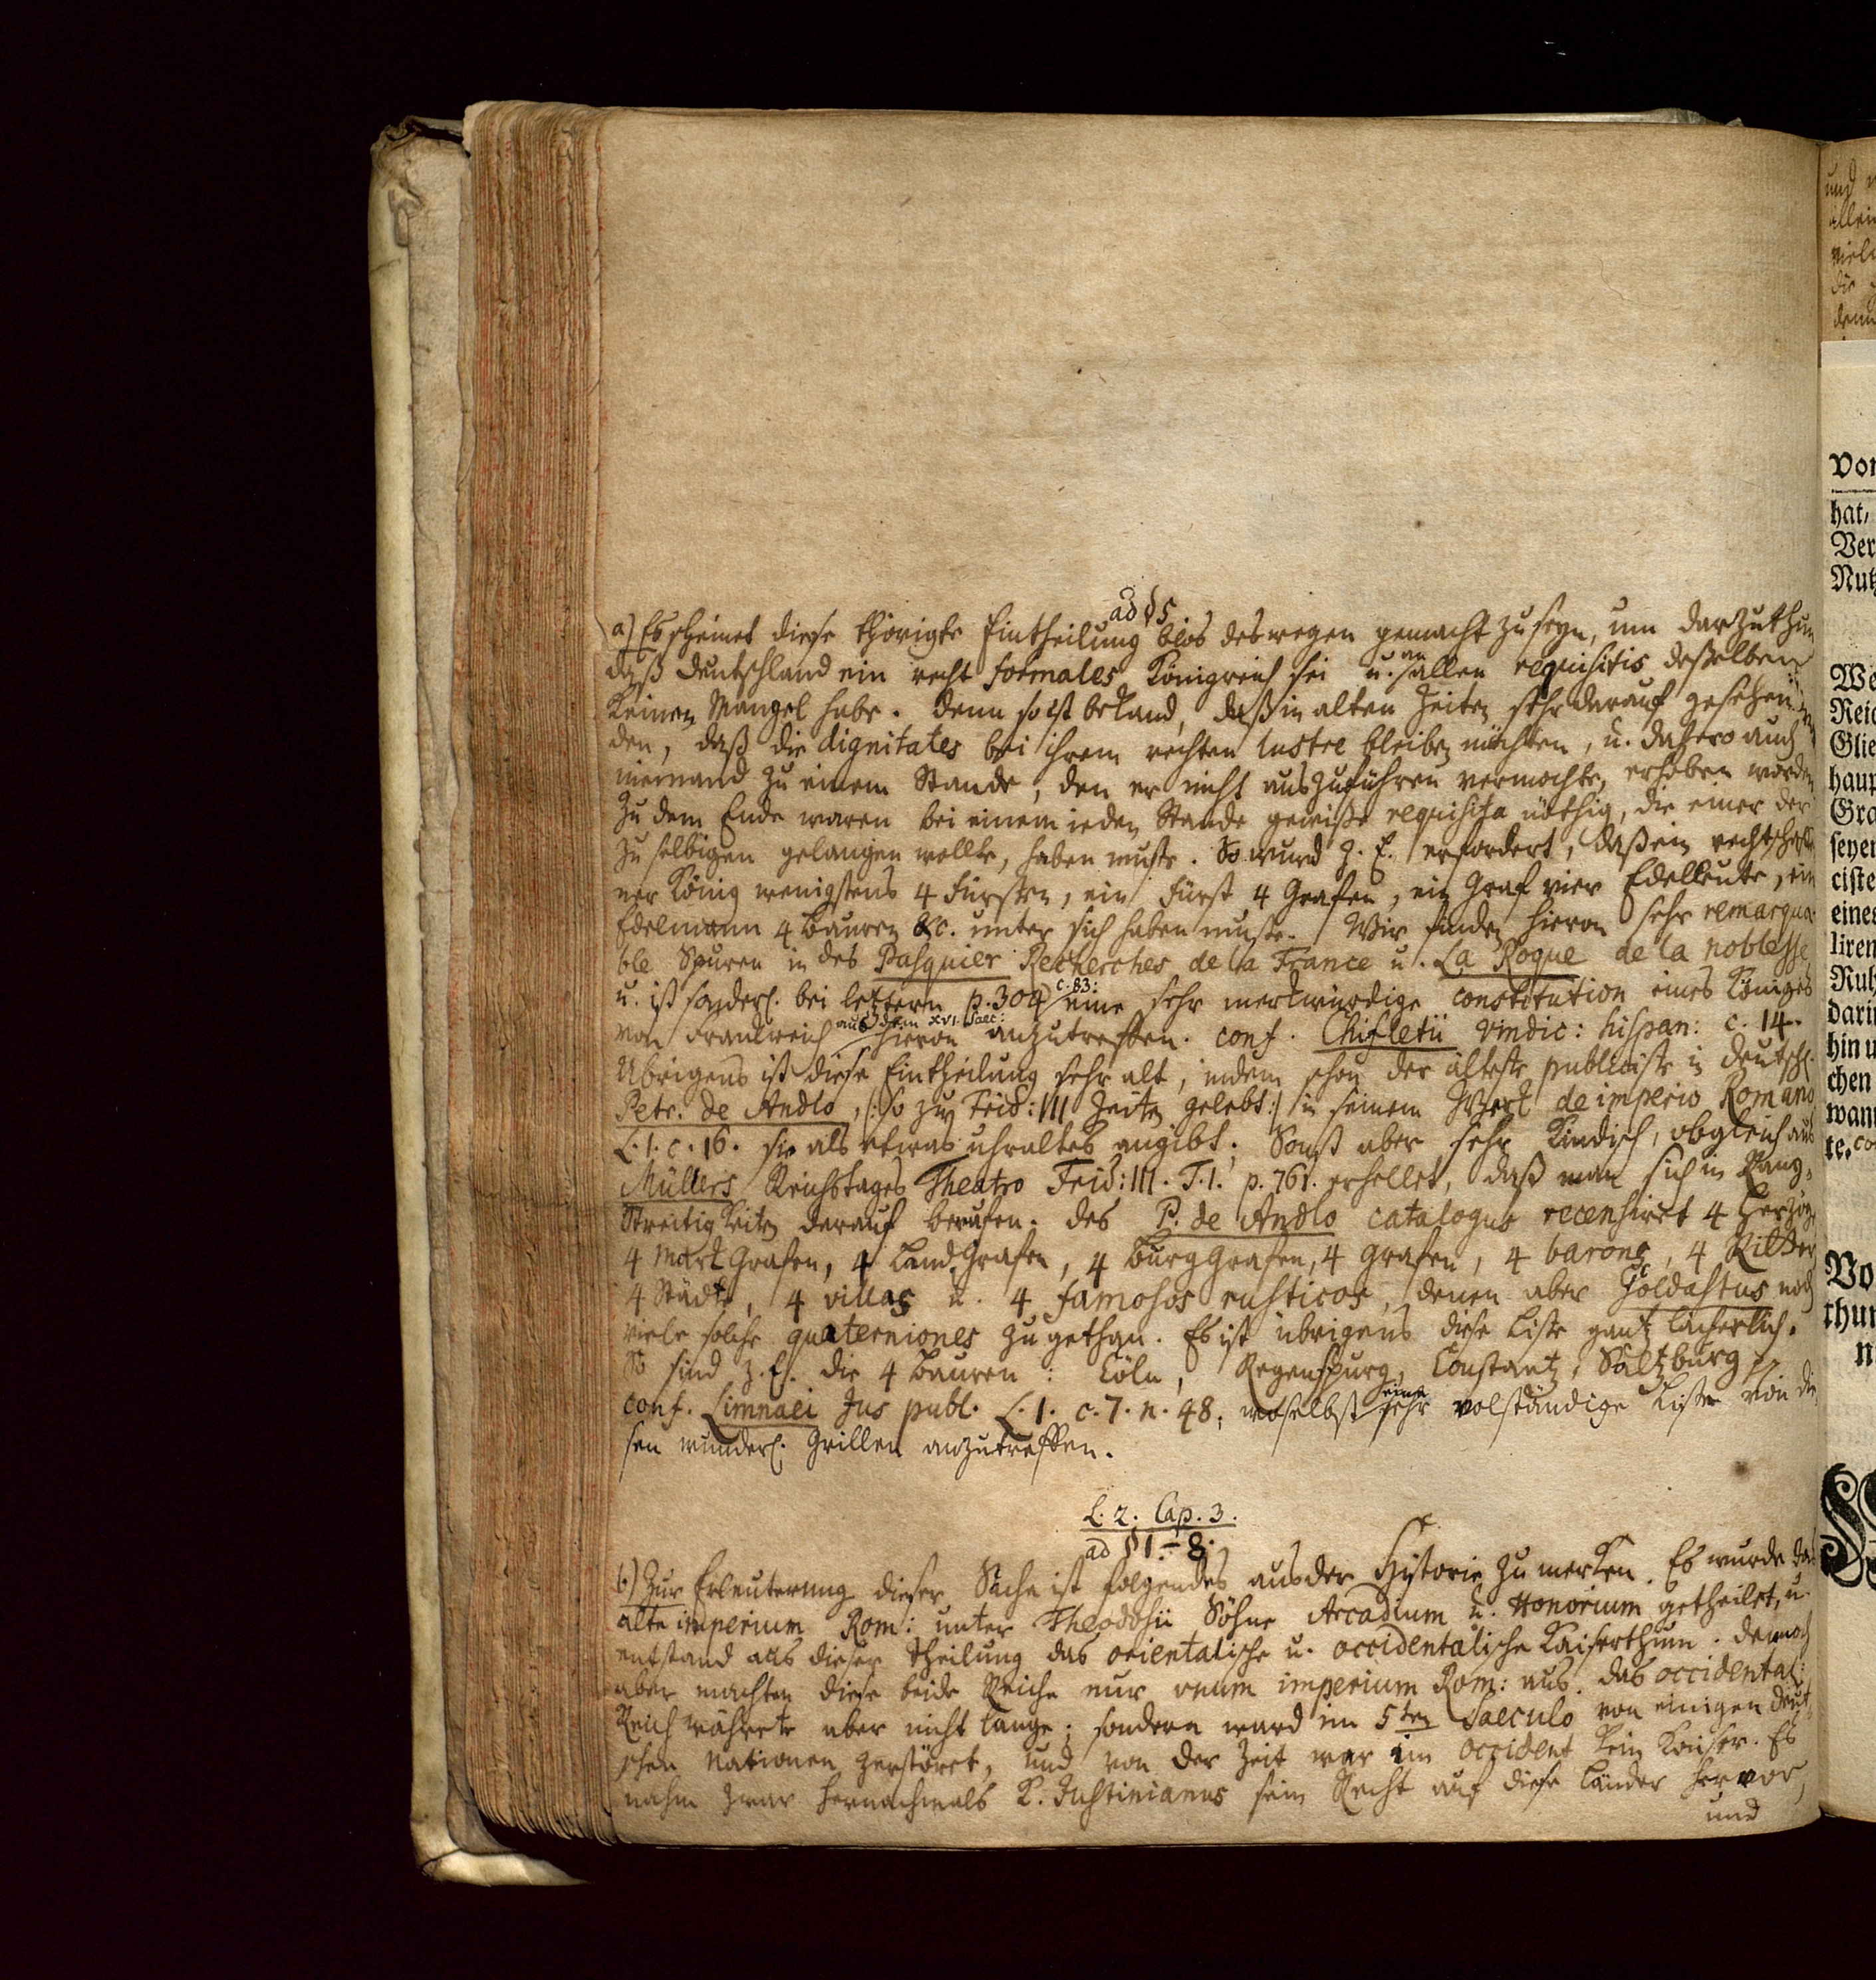 ad §5
a) Es scheinet diese thörigte Eintheilung blos deswegen gemacht zu seyn, um darzuthun
daß Deutschland ein recht formales Königreich sei u. an allen requisitis deßelben
keinen Mangel habe. Denn so ist bekand, daß in alten Zeiten sehr darauf gesehen
den, daß die dignitates bei ihrem rechten lustre bleiben möchten, u. dahero auch
niemand zu einem Stande, den er nicht auszuführen vermochte, erhoben worden
Zu dem Ende waren bei einem ieden Stande gewiße requisita nöthig, die einer der
zu selbigen gelangen wollte, haben muste. So wurd z. E. erfordert, daß ein rechtschaff
ner König wenigstens 4 Fürsten, ein Fürst 4 Grafen, ein Graf vier Edelleute, ein
Edelmann 4 Bauren &c. unter sich haben muste. Wir finden hievon sehr remarqua-
ble Spuren in des Pasquier Recherches de la France u. La Roque de la noblesse
u. ist sonderl. bei letztern p. 304 c. 83: eine sehr merkwürdige constitution eines Königes
von Frankreich aus dem XVI. Saec: hievon anzutreffen. conf. Chifletii vindic: hispan: c. 14.
Übrigens ist diese Eintheilung sehr alt, indem schon der älteste publiciste in Deutschl.
Petr. de Andlo, /: so zu Frid: III Zeiten gelebt :/ in seinem Werk de imperio Romano
L. 1. c. 16. sie als etwas uhraltes angibt. Sonst aber sehr kindisch, obgleich aus
Müllers Reichstages Theatro Frid: III. T. 1. p. 761. erhellet, daß man sich in Rang-
Streitigkeiten darauf berufen. des P. de Andlo catalogus recensiret 4 Herzoge
4 Mark Grafen, 4 Land Grafen, 4 Burg Grafen, 4 Grafen, 4 barone, 4 Ritter
4 Städte, 4 villas u. 4 famosos rusticos, denen aber Goldastus noch
viele solche quaterniones zu gethan. Es ist übrigens diese Liste gantz lächerlich.
So sind z. E. die 4 Bauren: Cöln, Regenspurg, Constantz, Saltzburg
conf. Limnaei Jus publ. L. 1. c. 7. n. 48, woselbst eine sehr volständige Liste von die
sen wunderl. Grillen anzutreffen.
L. 2. Cap. 3.
ad § 1 – 8.
b) Zur Erleuterung dieser Sache ist folgendes aus der Historie zu merken. Es wurde das
alte imperium Rom: unter Theodosii Söhne Arcadium u. Honorium getheilet, u.
entstand aus dieser Theilung das orientalische u. occidentalische Kaiserthum. dennoch
aber machten diese beide Reiche nur unum imperium Rom: aus. das occidental:
Reich währete aber nicht lange; sondern ward im 5ten Saeculo von einigen deut-
schen Nationen zerstöret, und von der Zeit war im occident kein Kaiser. Es
nahm zwar hernachmals K. Justinianus sein Recht auf diese Länder hervor,
und